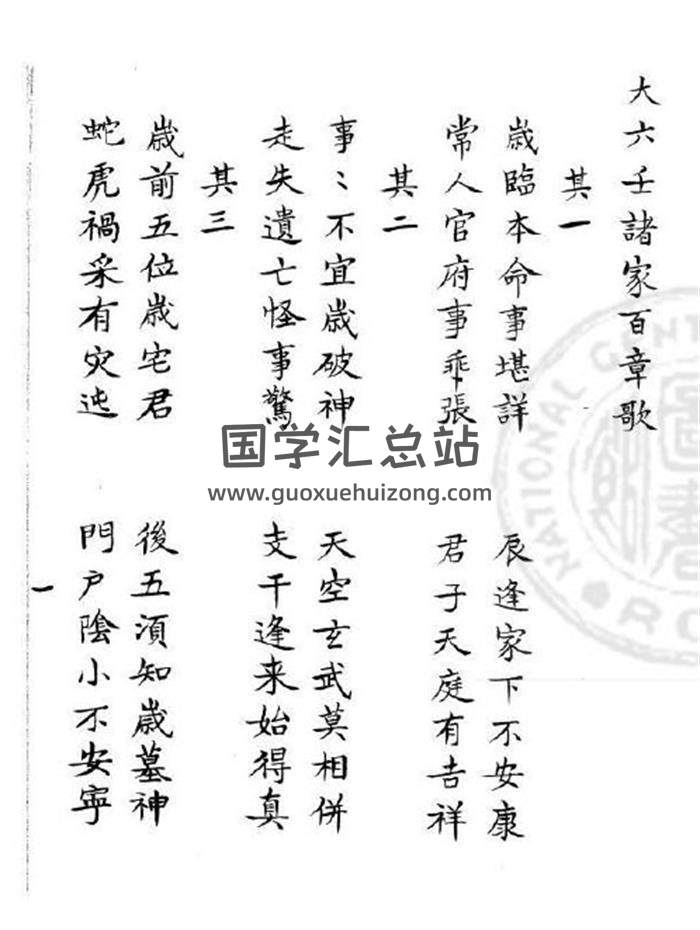 大六壬諸家百章歌
其一
歲臨本命事堪詳 辰逢家下不安康
常人官府事乖張 君子天庭有吉祥
其二
事〻不宜歲破神 天空玄武莫相併
走失遺亡怪事驚 支干逢来始得真
其三
歲前五位歲宅君 後五須知歲墓神
蛇虎禍采有灾迍 門戶陰小不安寧
一
国学汇总站
www.guoxuehuizong.com
NATIONAL CENT